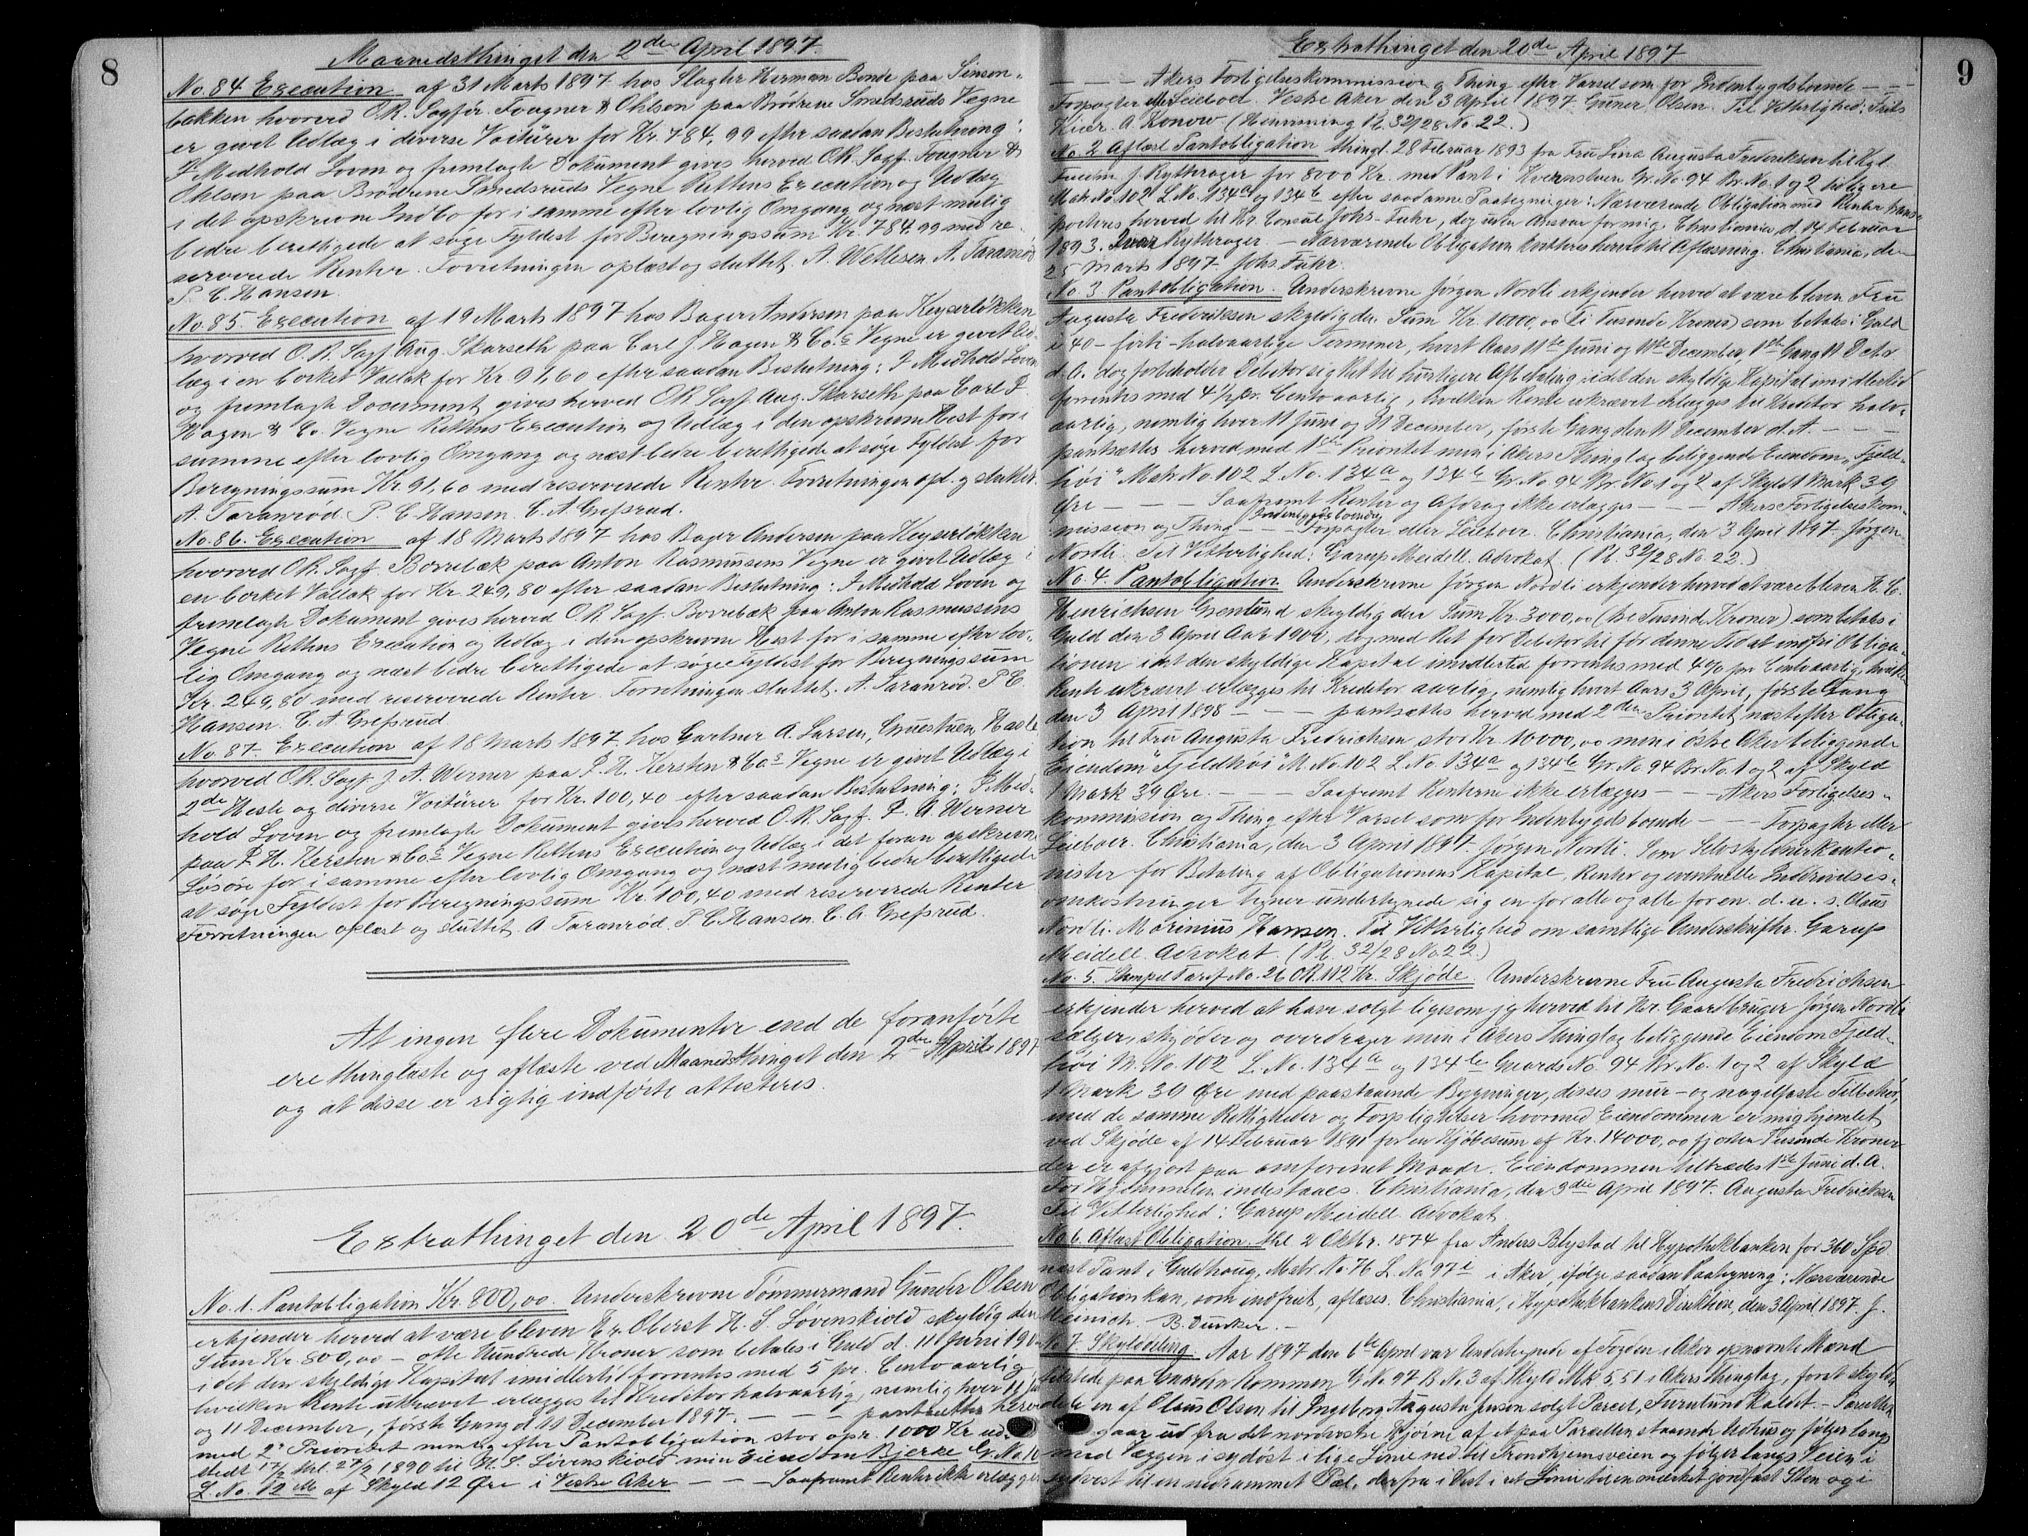 8
Maanedsthinget den 2den April 1897.
No. 84 Execution af 31 Marts 1897 hos Slagter Herman Bonde paa Sinsen-
bakken hvorved O.R. Sagfør. Fougner & Ohlson paa Brødrene Smedsruds Vegne
er givet Udlæg i diverse Voitürer for Kr. 784,99 efter saadan Beslutning:
I Medhold Loven og fremlagte Dokument gives herved O.R. Sagf. Fougner &
Ohlsen paa Brødrene Smedsruds Vegne Rettens Execution og Udlæg
i det opskrevne Indbo for i samme efter lovlig Omgang og næst mulig
bedre berettigede at søge Fyldest for Beregningssum Kr. 784.99 med re-
serverede Renter. Forretningen oplæst og sluttet. A. Wetlesen. A. Taranrød
P. C. Hansen.
No. 85. Execution af 19 Marts 1897 hos Bager Andersen paa Keyserløkken
hvorved O.R. Sagf. Aug. Skarseth paa Carl J. Hagen & Co.s Vegne er givet Ud-
læg i en borket Vallak for Kr 91,60 efter saadan Beslutning: I Medhold Loven
og fremlagte Document gives herved O.R. Sagf. Aug. Skarseth paa Carl J.
Hagen & Co. Vegne Rettens Execution og Udlæg i den opskrevne Hest for i
samme efter lovlig Omgang og næst bedre berettigede at søge Fyldest for
Beregningssum Kr. 91,60 med reserverede Renter. Forretningen opl. og sluttet.
A. Taranrød. P. C. Hansen. C. A. Grefsrud.
No. 86. Execution af 18 Marts 1897 hos Bager Andersen paa Keyserløkken
hvorved O.R. Sagf. Borrebæk paa Anton Rasmussens Vegne er givet Udlæg i
en borket Vallak for Kr. 249,80 efter saadan Beslutning: I Medhold Loven og
fremlagte Dokument gives herved O.R. Sagf. Borrebæk paa Anton Rasmussens
Vegne Rettens Execution og Udlæg i den opskrevne Hest for i samme efter lov-
lig Omgang og næst bedre berettigede at søge Fyldest for Beregningssum
Kr. 249,80 med reserverede Renter. Forretningen sluttet. A. Taranrød. P. C.
Hansen. C. A. Grefsrud
No. 87. Execution af 18 Marts 1897 hos Gartner A. Larsen, Gruestuen, Hasle
hvorved O.R. Sagf. J. A. Werner paa P. H. Kersten & Co.s Vegne er givet Udlæg i
2de Heste og diverse Voitürer for Kr. 100,40 efter saadan Beslutning: I Med-
hold Loven og fremlagte Dokument gives herved O.R. Sagf. J. A. Werner
paa P. H. Kersten & Co.s Vegne Rettens Execution og Udlæg i det foran opskrevne
Løsøre for i samme efter lovlig Omgang og næst mulig bedre berettigede
at søge Fyldest for Beregningssum Kr. 100,40 med reserverede Renter
Forretningen oplæst og sluttet. A Taranrød. P. C. Hansen. C. A. Grefsrud.
At ingen flere Dokumenter end de foranførte
ere thinglæste og aflæste ved Maanedsthinget den 2den April 1897
og at disse er rigtig indførte attesteres.
Extrathinget den 20de April 1897.
No. 1. Pantobligation Kr. 800,00. Underskrevne Tømmermand Gunder Olsen
erkjender herved at være bleven Hr. Oberst H. S. Løvenskiold skyldig den
Sum Kr. 800,00 - otte Hundrede Kroner som betales i Guld d. 11 Juni
idet den skyldige Kapital imidlertid forrentes med 5 pr. Cento aarlig
hvilken Rente ukrævet erlægges til Kreditor halvaarlig, nemlig hver 11 Juni
og 11 December, første Gang d. 11 December 1897. — — — pantsættes herved
med 2' Prioritet nemlig efter Pantobligation stor opr. 1000 Kr ud-
stedt 17/2 thl. 27/2 1890 til H. S. Løvenskiold min Eiendom Bjerke G. No.
L. No. 12 af Skyld 12 Øre i Vestre Aker — — — Saafremt Renter ikke erlægges
9
Extrathinget den 20de April 1897
— — — Akers Forligelseskommission og Thing efter Varsel som for Indenbygdsboende — — —
Forpagter eller Leieboer. Vestre Aker den 3 April 1897. Gunder Olsen. Til Vitterlighed: Frits
Kiær. A. Konow (Henvisning Pr. 32/28 No. 22.)
No. 2 Aflæst Pantobligation thingl. 28 Februar 1893 fra Fru Lina Augusta Frederiksen til Hgl.
J. Rythrager for 8000 Kr. med Pant i Kvernstuen Gr. No. 94 Br. No. 1 og 2 tidligere
Matr. No. 102 L. No. 134a og 134b efter saadanne Paategninger: Nærværende Obligation med Renter trans-
porteres herved til Hr. Consul Johs. Fuhr, dog uden Ansvar for mig. Christiania, d. 14 Februar
1893. Rythrager. — Nærværende Obligation kvitteres herved til Aflæsning. Christiania, den
25 Marts 1897. Johs. Fuhr.
No. 3 Pantobligation. Underskrevne Jørgen Nordli erkjender herved at være bleven Fru
Augusta Frederiksen skyldig den Sum Kr. 10000,00 (Ti Tusinde Kroner) som betales i Guld
i 40 - førti - halvaarlige Terminer, hvert Aars 11te Juni og 11te December, 1ste Gang 11 Decbr
d. A. dog forbeholder Debitor sig Ret til hurtigere Afbetaling idet den skyldige Kapital imidlertid
forrentes med 4½ pr. Cento aarlig, hvilken Rente ukrævet erlægges til Kreditor halv-
aarlig, nemlig hver 11 Juni og 11 December, første Gang den 11 December d. A. — — —
pantsættes herved med 1ste Prioritet min i Akers Thinglag beliggende Eiendom „Fjeld-
høi" Matr. No. 102 L. No. 134a og 134b Gr. No. 94 Br. No. 1 og 2 af Skyld 1 Mark 39
Øre — — — Saafremt Renter og Afdrag ikke erlægges — — — Akers Forligelseskom-
mission og Thing Indenbygdsboende — — Forpagter eller Leieboer. Christiania, den 3 April 1897. Jørgen
Nordli. Til Vitterlighed: Garup Meidell. Advokat. (Pr. 32/28 No. 22.)
No. 4. Pantobligation. Underskrevne Jørgen Nordli erkjender herved at være bleven H. C.
Henrichsen Grenlund skyldig den Sum Kr. 3000,00 (tre Tusinde Kroner) som betales i
Guld den 3 April Aar 1904, dog med Ret for Debitor til før denne Tid at indfri Obliga-
tionen idet den skyldige Kapital imidlertid forrentes med 4½ pr. Cento aarlig, hvilken
Rente ukrævet erlægges til Kreditor aarlig, nemlig hvert Aars 3 April, første Gang
den 3 April 1898 — — — pantsættes herved med 2den Prioritet næst efter Obliga-
tion til Fru Augusta Fredrichsen stor Kr. 10000,00 min i Østre Aker beliggende
Eiendom „Fjeldhøi" M. No. 102 L. No. 134a og 134b Gr. No 94 Br. No. 1 og 2 af Skyld
1 Mark 39 Øre. — — — Saafremt Renterne ikke erlægges — — — Akers Forligelses-
kommission og Thing efter Varsel som for Indenbygdsboende — — — Forpagter eller
Leieboer. Christiania, den 3 April 1897. Jørgen Nordli. Som Selvskyldnerkautio-
nister for Betaling af Obligationens Kapital, Renter og eventuelle Inddrivelses-
omkostninger tegner undertegnede sig en for alle og alle for en. d. u. s. Olaus
Nordli. Marinius Hansen. Til Vitterlighed om samtlige Underskrifter. Garup
Meidell. Advokat. (Pr. 32/28 No. 22.)
No. 5. Stempel Tarif No. 26 OR. 112 Kr. Skjøde. Underskrevne Fru Augusta Fredrichsen
erkjender herved at have solgt ligesom jeg herved til Hr. Gaardbruger Jørgen Nordli
sælger, skjøder og overdrager min i Akers Thinglag beliggende Eiendom Fjeld-
høi M. No. 102 L. No. 134a og 134b Gaards No. 94 Br. No. 1 og 2 af Skyld
1 Mark 39 Øre med paastaaende Bygninger, disses mur- og nagelfaste Tilbehør,
med de samme Rettigheder og Forpligtelser hvormed Eiendommen er mig hjemlet
ved Skjøde af 14 Februar 1891 for en Kjøbesum af Kr. 14000,00 fjorten Tusinde Kroner
der er afgjort paa omforenet Maade. Eiendommen tiltrædes 1ste Juni d. A.
For Hjemmelen indestaaes. Christiania, den 3die April 1897. Augusta Fredrichsen
Til Vitterlighed: Garup Meidell. Advokat
No. 6. Aflæst Obligation, thl. 2 Oktbr. 1874 fra Anders Blystad til Hypothekbanken for 360 Spd
næst Pant i Guldhaug, Matr. No. 76 L. No. 97e i Aker, ifølge saadan Paategning: Nærværende
Obligation kan, som indfriet, aflæses. Christiania, i Hypothekbankens Direktion, den 3 April 1897. J.
Heinsch. B. Dunker. —
No. 7. Skylddeling. Aar 1897 den 6te April var Undertegnede af Fogden i Aker opnævnte Mænd
tilstede paa Gaarden Kommen G. No. 97 B. No. 3 af Skyld Mk 5,51 i Akers Thinglag, foret skyld-
dele en af Olaus Olsen til Ingeborg Augusta Jensen solgt Parcel, Furulund kaldet. — Parcellen
gaar ud fra det nordvestre Hjørne af et paa Parsellen staaende Udhus og følger langs
med Væggen i sydøst i lige Linie ned til Trondhjemsveien og følger langs Veien i
Sydvest til en nedrammet Pæl, derfra i Vest i ret Linie til en mærket jordfast Sten og i